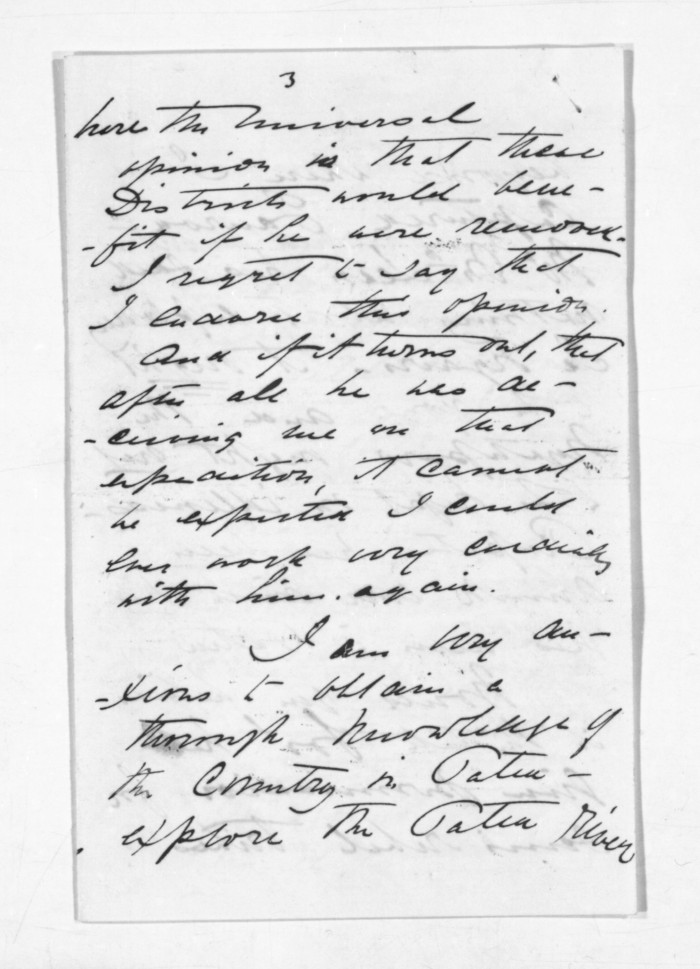 3
here the universal
opinion is that these
Districts would bene-
-fit if he were removed.
I regret to say that
I endorse this opinion.
And if it turns out, that
after all he was de-
-ceiving me on that
expedition, it cannot
be expected I could
ever work very cordially
with him again.
I am very an-
-xious to obtain a
through knowledge of
the Country in Patea -
explore the Patea River